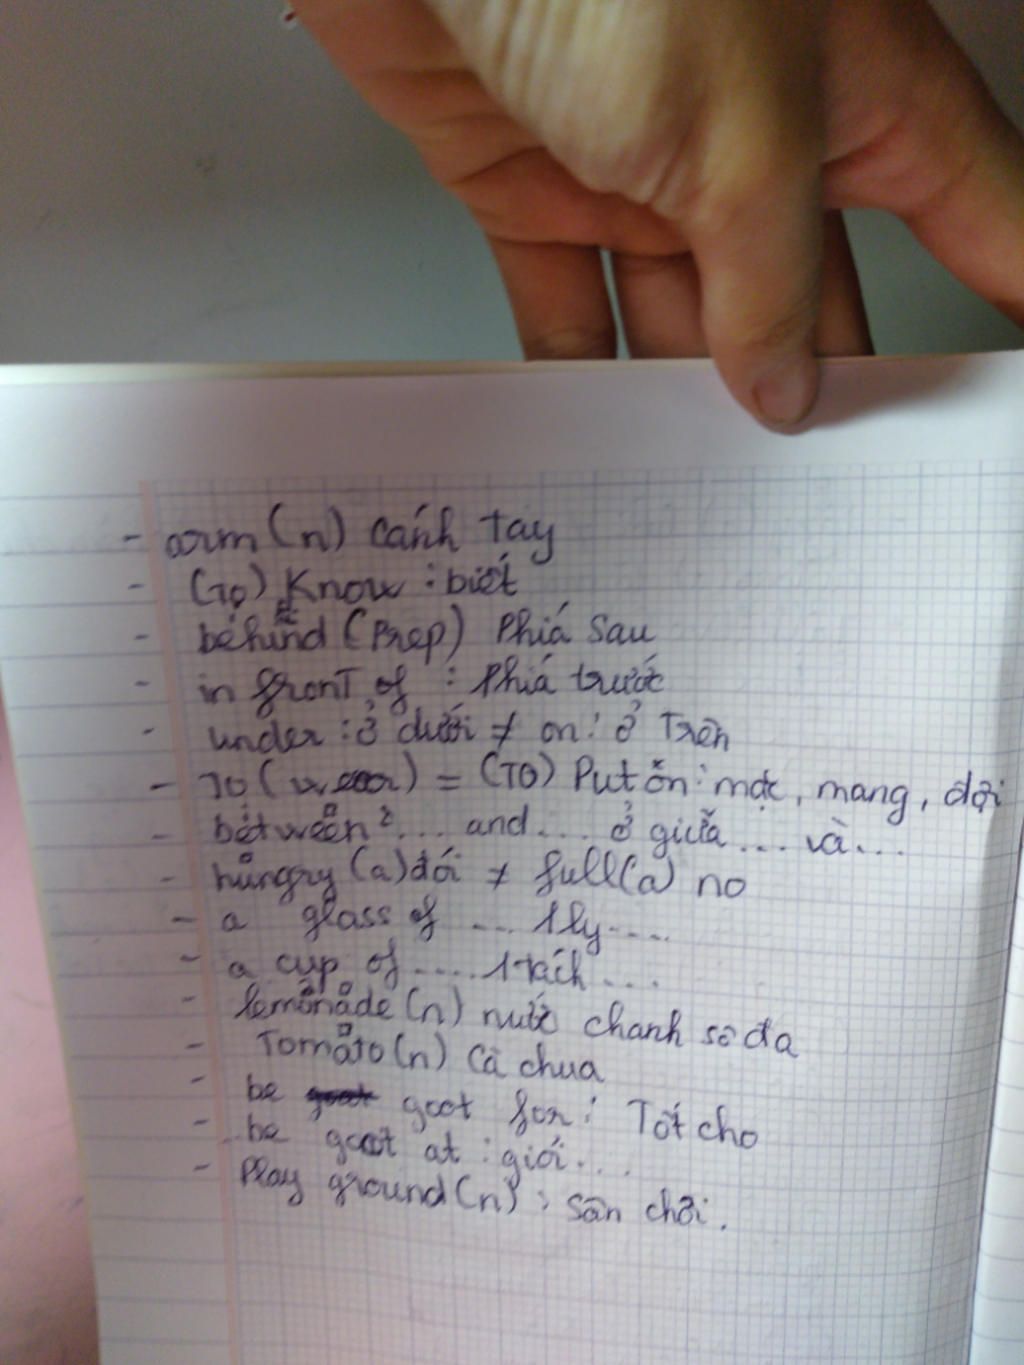 - arm (n) Cánh tay
- (To) Know : biết
- behind (Prep) Phiá sau
- in front of : Phiá trước
- under : ở dưới ≠ on : ở Trên
- To (wear) = (To) Put on : mặc, mang, đội
- between ... and ... ở giữa ... và ...
- hungry (a) đói ≠ full (a) no
- a glass of ... 1 ly ....
- a cup of .... 1 tách ...
- lemonade (n) nước chanh sô đa
- Tomato (n) Cà chua
- be goot for : Tốt cho
- be goot at : giỏi ...
- Play ground (n) : Sân chơi.